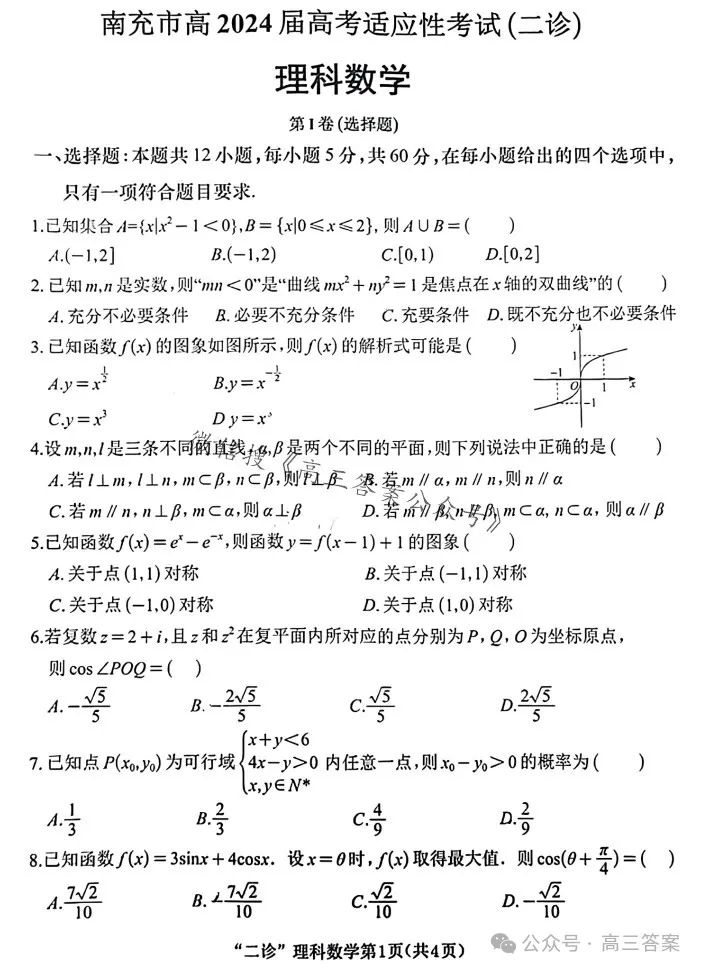 南充市高 2024 届高考适应性考试(二诊)
理科数学
第Ⅰ卷(选择题)
一、选择题:本题共 12 小题,每小题 5 分,共 60 分,在每小题给出的四个选项中,
只有一项符合题目要求.
1.已知集合 A={x|x²-1<0},B={x|0≤x≤2},则 A∪B=( )
A.(-1,2] B.(-1,2) C.[0,1) D.[0,2]
2.已知 m,n 是实数,则“mn<0”是“曲线 mx²+ny²=1 是焦点在 x 轴的双曲线”的( )
A.充分不必要条件 B.必要不充分条件 C.充要条件 D.既不充分也不必要条件
3.已知函数 f(x) 的图象如图所示,则 f(x) 的解析式可能是( )
y 1 -1 O 1 x -1
A.y=x^{1/2} B.y=x^{-1/2}
C.y=x³ D y=x
4.设 m,n,l 是三条不同的直线,α,β 是两个不同的平面,则下列说法中正确的是( )
A.若 l⊥m,l⊥n,m⊂β,n⊂β,则 l⊥β B.若 m∥α,m∥n,则 n∥α
C.若 m∥n,n⊥β,m⊂α,则 α⊥β D.若 m∥β,n∥β,m⊂α,n⊂α,则 α∥β
微信搜《高三答案公众号》
5.已知函数 f(x)=e^x-e^{-x},则函数 y=f(x-1)+1 的图象( )
A.关于点 (1,1) 对称 B.关于点 (-1,1) 对称
C.关于点 (-1,0) 对称 D.关于点 (1,0) 对称
6.若复数 z=2+i,且 z 和 z² 在复平面内所对应的点分别为 P,Q,O 为坐标原点,
则 cos∠POQ=( )
A.-√5/5 B.-2√5/5 C.√5/5 D.2√5/5
7.已知点 P(x₀,y₀) 为可行域 {x+y<6 4x-y>0 x,y∈N* 内任意一点,则 x₀-y₀>0 的概率为( )
A.1/3 B.2/3 C.4/9 D.2/9
8.已知函数 f(x)=3sinx+4cosx.设 x=θ 时,f(x) 取得最大值.则 cos(θ+π/4)=( )
A.7√2/10 B.-7√2/10 C.√2/10 D.-√2/10
“二诊”理科数学第1页(共4页)
公众号·高三答案